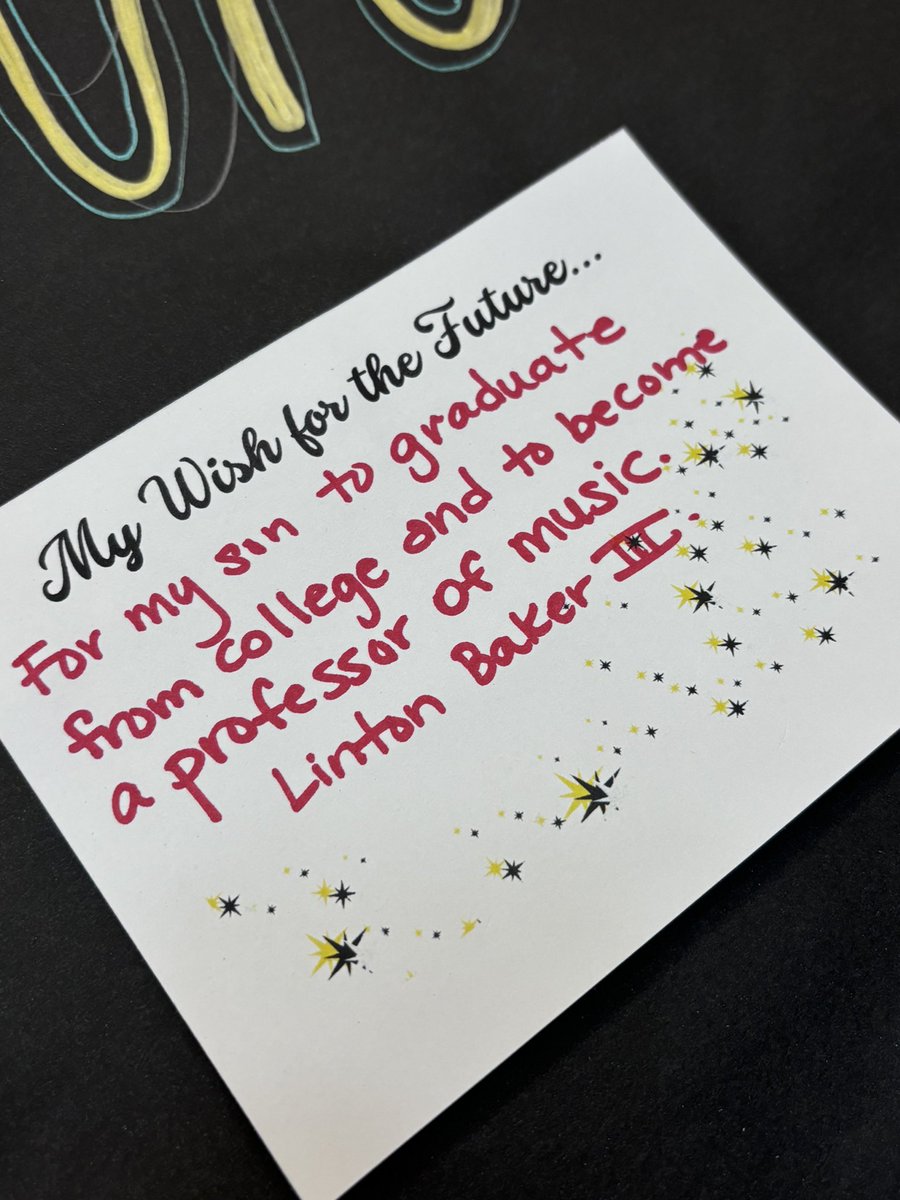 My Wish for the Future...
For my sin to graduate
from college and to become
a professor of music.
Linton Baker III.